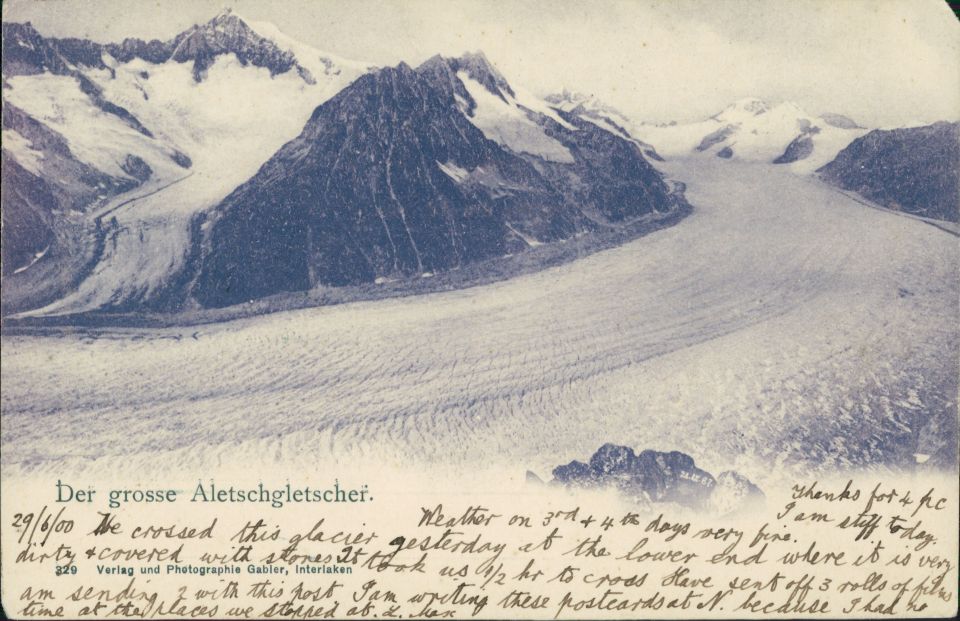 Der grosse Aletschgletscher.
Thanks for 4 pc
I am stiff today.
Weather on 3rd + 4th days very fine.
29/6/00 We crossed this glacier yesterday at the lower end where it is very
dirty + covered with stones It took us 1/2 hr to cross Have sent off 3 rolls of films
329 Verlag und Photographie Gabler, Interlaken
am sending 2 with this post I am writing these postcards at N. because I had no
time at the places we stopped at. Max